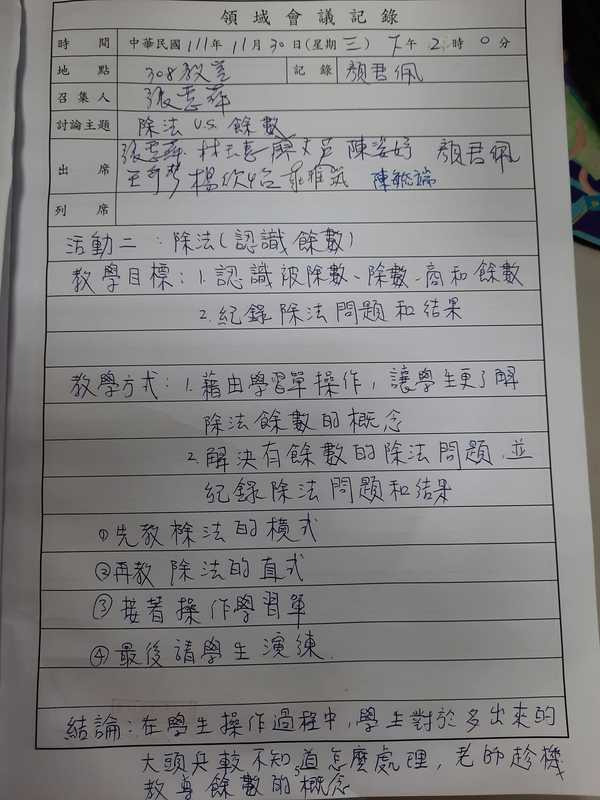 領域會議記錄
時間 中華民國111年11月30日(星期三)下午2時0分
地點 308教室 記錄 顏君佩
召集人 張惠萍
討論主題 除法 v.s. 餘數
出席 張惠萍 陳姿婷 顏君佩
楊欣怡
列席
活動二:除法(認識餘數)
教學目標:1.認識被除數、除數、商和餘數
2.紀錄除法問題和結果
教學方式:1.藉由學習單操作,讓學生更了解
除法餘數的概念
2.解決有餘數的除法問題,並
紀錄除法問題和結果
①先教除法的橫式
②再教除法的直式
③接著操作學習單
④最後請學生演練.
結論:在學生操作過程中,學生對於多出來的
大頭兵較不知道怎麼處理,老師趁機
教導餘數的概念